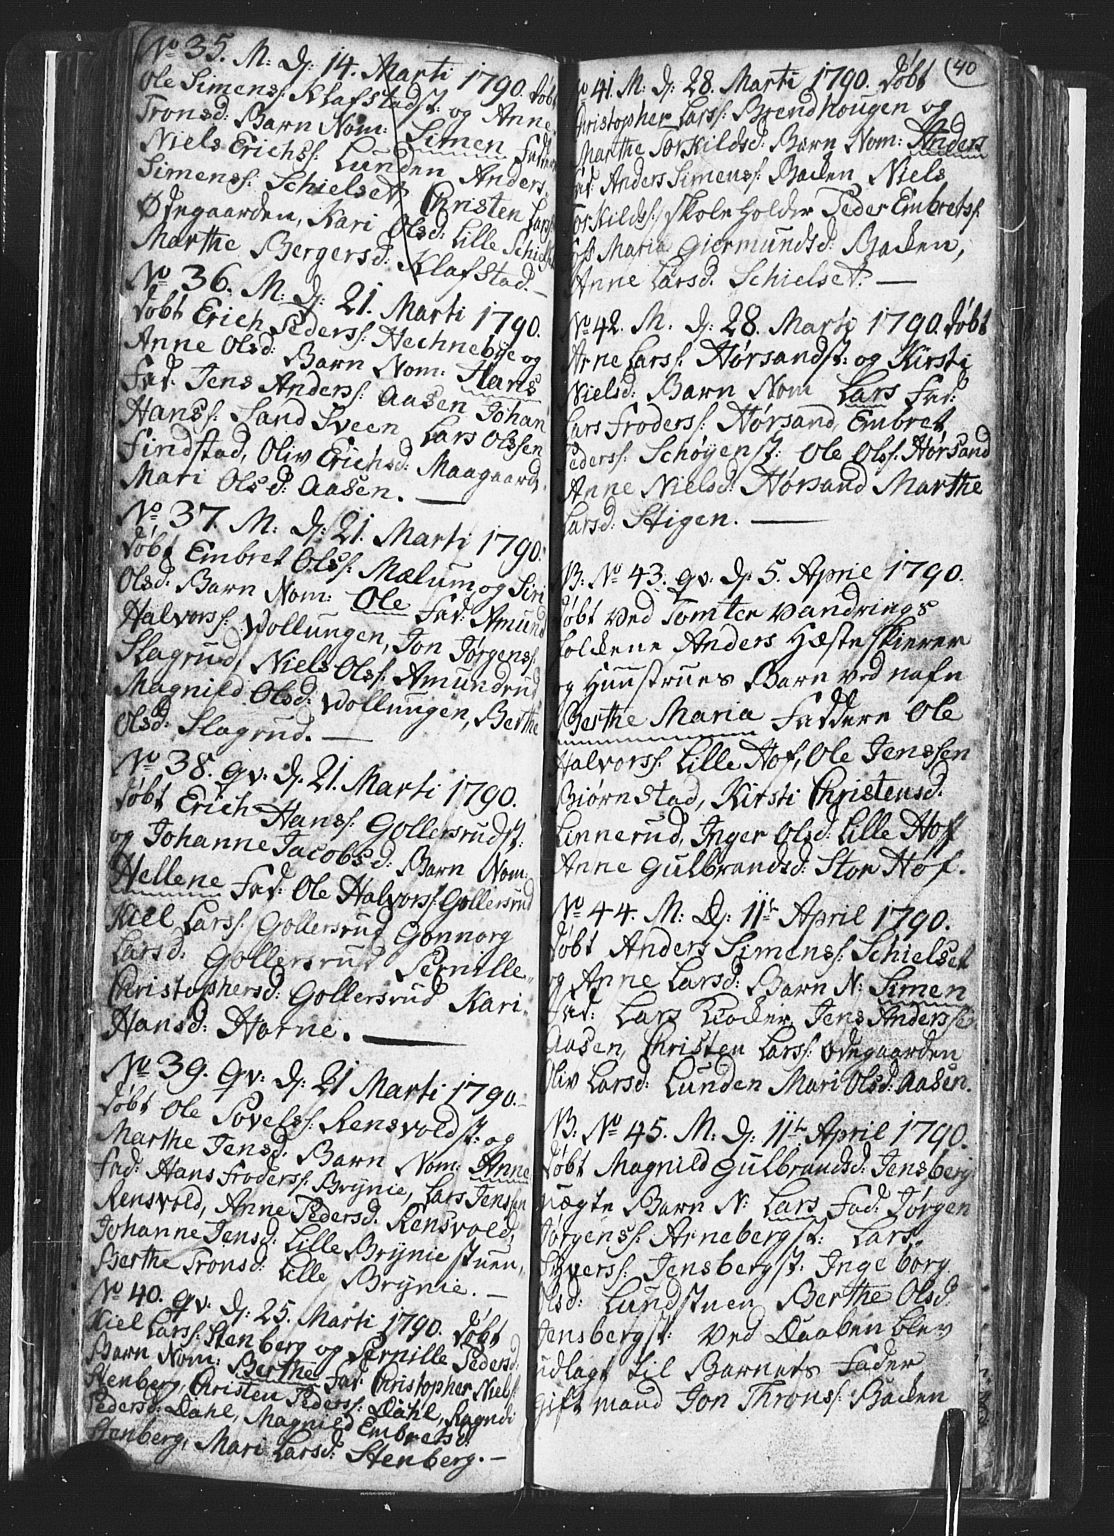 No 35. M. Dj: 14. Marti 1790. døbt
Ole Simens: Klafstadst: og Anne
Tronsd: Barn Nom: Simen Fadr
Niels Erichs: Lunden Anders
Simenss: Schielset, Christen Lars:
Ødegaarden, Kari Olsd: Lille Schiels
Marthe Bergersd: Klafstad. —
No 36. M: Dj: 21. Marti 1790.
døbt Erich Peders: Hechnebye og
Anne Olsd: Barn Nom: Hans
Fad: Jens Anders: Aasen Johan
Hanss: Sand Sveen Lars Olssen
Findstad, Oliv Erichsd: Maagaard,
Mari Olsd: Aasen. —
No 37. M: Dj: 21. Marti 1790.
døbt Embret Olss: Mælum og Siri
Olsd: Barn Nom: Ole Fad: Amund
Halvorss: Wollungen, Jon Jørgens:
Slagrud, Niels Olss: Amundrud
Magnild Olsd: Wollungen, Berthe
Olsd: Slagrud. —
No 38. qv: Dj: 21. Marti 1790.
døbt Erich Hans: Gollersrudst:
og Johanne Jacobsd: Barn Nom:
Hellene Fad: Ole Halvors: Gollersrud
Kiel Larss: Gollersrud Gonnorg
Larsd: Gollersrud Pernille
Christophersd: Gollersrud Kari
Hansd: Horne. —
No 39. qv: Dj: 21 Marti 1790.
døbt Ole Povels: Rensvoldst: og
Marthe Jensd: Barn Nom: Anne
Fad: Hans Froders: Brÿnie, Lars Jenssen
Rensvold, Anne Pedersd: Rensvold,
Johanne Jensd: Lille Brÿnie stuen,
Berthe Tronsd: Lille Brÿnie. —
No 40. qv: Dj: 25. Marti 1790. døbt
Kiel Larss: Stenberg og Pernille Pedersd:
Barn Nom: Berthe Fad: Christopher Niels:
Stenberg, Christen Peders: Dahl, Ragndi
Pedersd: Dahl, Magnild Embretsd:
Stenberg, Mari Larsd: Stenberg. —
40
No 41. M. Dj: 28. Marti 1790. døbt
Christopher Larss: Brendhougen og
Marthe Torkildsd: Barn Nom: Anders
Fad: Anders Simenss: Backen Niels
Torkildss: skoleholder Peder Embretss:
Maria Giermundsd: Backen,
Anne Larsd: Schielset. —
No 42. M. Dj: 28. Marti 1790. døbt
Arne Larss: Hørsandst: og Kirsti
Nielsd: Barn Nom Lars Fad:
Lars Froderss: Hørsand, Embret
Pederss: Schøyenst: Ole Olss: Hørsand
Anne Nielsd: Hørsand Marthe
Larsd: Stigen. —
NB. No 43. qv. Dj: 5. April 1790.
døbt ved Tomter vandrings
foldene Anders Hæsteskierer
og Huustrues Barn ved nafn
Berthe Maria Faddere Ole
Halvorss: Lille Hof, Ole Jenssen
Biørnstad, Kirsti Christensd:
Linnerud, Inger Olsd: Lille Hof
Anne Gulbrandsd: Stor Hof.
No 44. M: Dj: 11te April 1790.
døbt Anders Simenss: Schielset
og Anne Larsd: Barn N: Simen
Fad: Lars Klocker, Jens Anderss:
Aasen, Christen Larss: Ødegaarden
Oliv Larsd: Lunden Mari Olsd: Aasen.
NB. No 45. M. Dj: 11te April 1790.
døbt Magnild Gulbrandsd: Jensberg
uægte Barn N: Lars Fad: Jørgen
Jørgenss: Arnebergst: Lars
Siverss: Jensbergst. Ingeborg
Olsd: Lundstuen Berthe Olsd
Jensbergst: Ved Daaben blev
udlagt til Barnets Fader
Gift mand Jon Throns: Backen